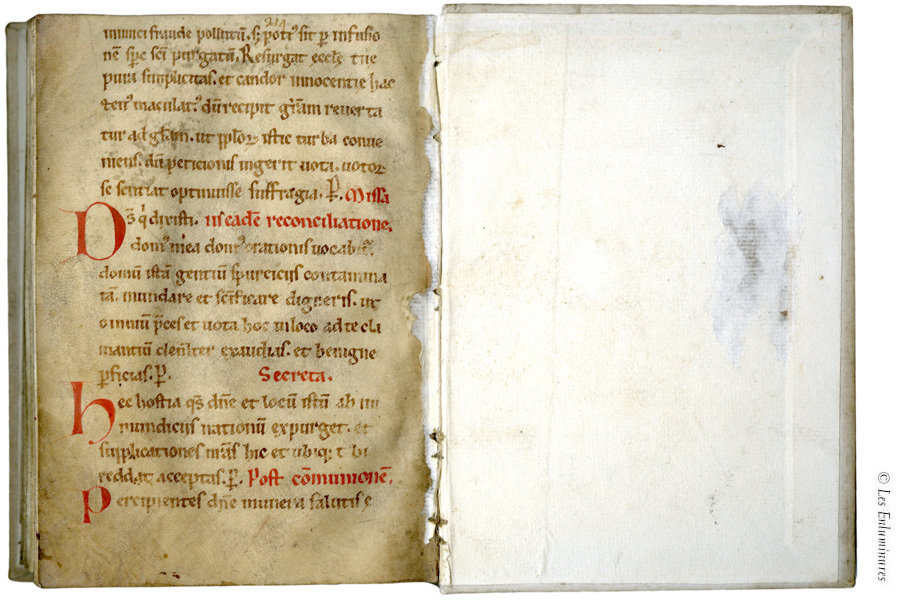 214
inimici fraude pollutū. ⁊ poti᷒ sit ꝑ infusio
nē sp̄c sc̄i purgatū. Resurgat eccl̄e tue
pura simplicitas. et candor innocentie hac
ten᷒ maculat᷒. dū recipit gr̄am reuerta
tur ad gl̄iam. ut pp̄lor̄ istic turba conue
niens. dū peticionis ingerit uota. uotor̄
se sentiat optinuisse suffragia. P̄. Missa
Ds̄ q̄ dixisti. in eadē reconciliatione.
dom᷒ mea dom᷒ orationis uocabit᷒.
domū istā gentiū spurciciis contamina
tā. mundare et sc̄ificare digneris. ut
omniū p̄ces et uota hoc in loco ad te cla
mantiū clem̄ter exaudias. et benigne
ꝑficias. P̄. Secreta.
Hec hostia qs̄ dn̄e et locū istū ab im
mundiciis nationū expurget. et
supplicationes nr̄as hic et ubiq; t bi
reddat acceptas. P̄. Post cōmunionē.
Percipientes dn̄e munera salutis
© Les Enluminures